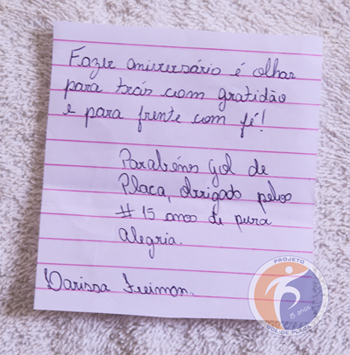 Fazer aniversário é olhar
para trás com gratidão
e para frente com fé!
Parabéns Gol de
Placa, obrigado pelos
# 15 anos de pura
alegria.
Larissa Freimon.
PROJETO
15 anos
GOL DE PLACA